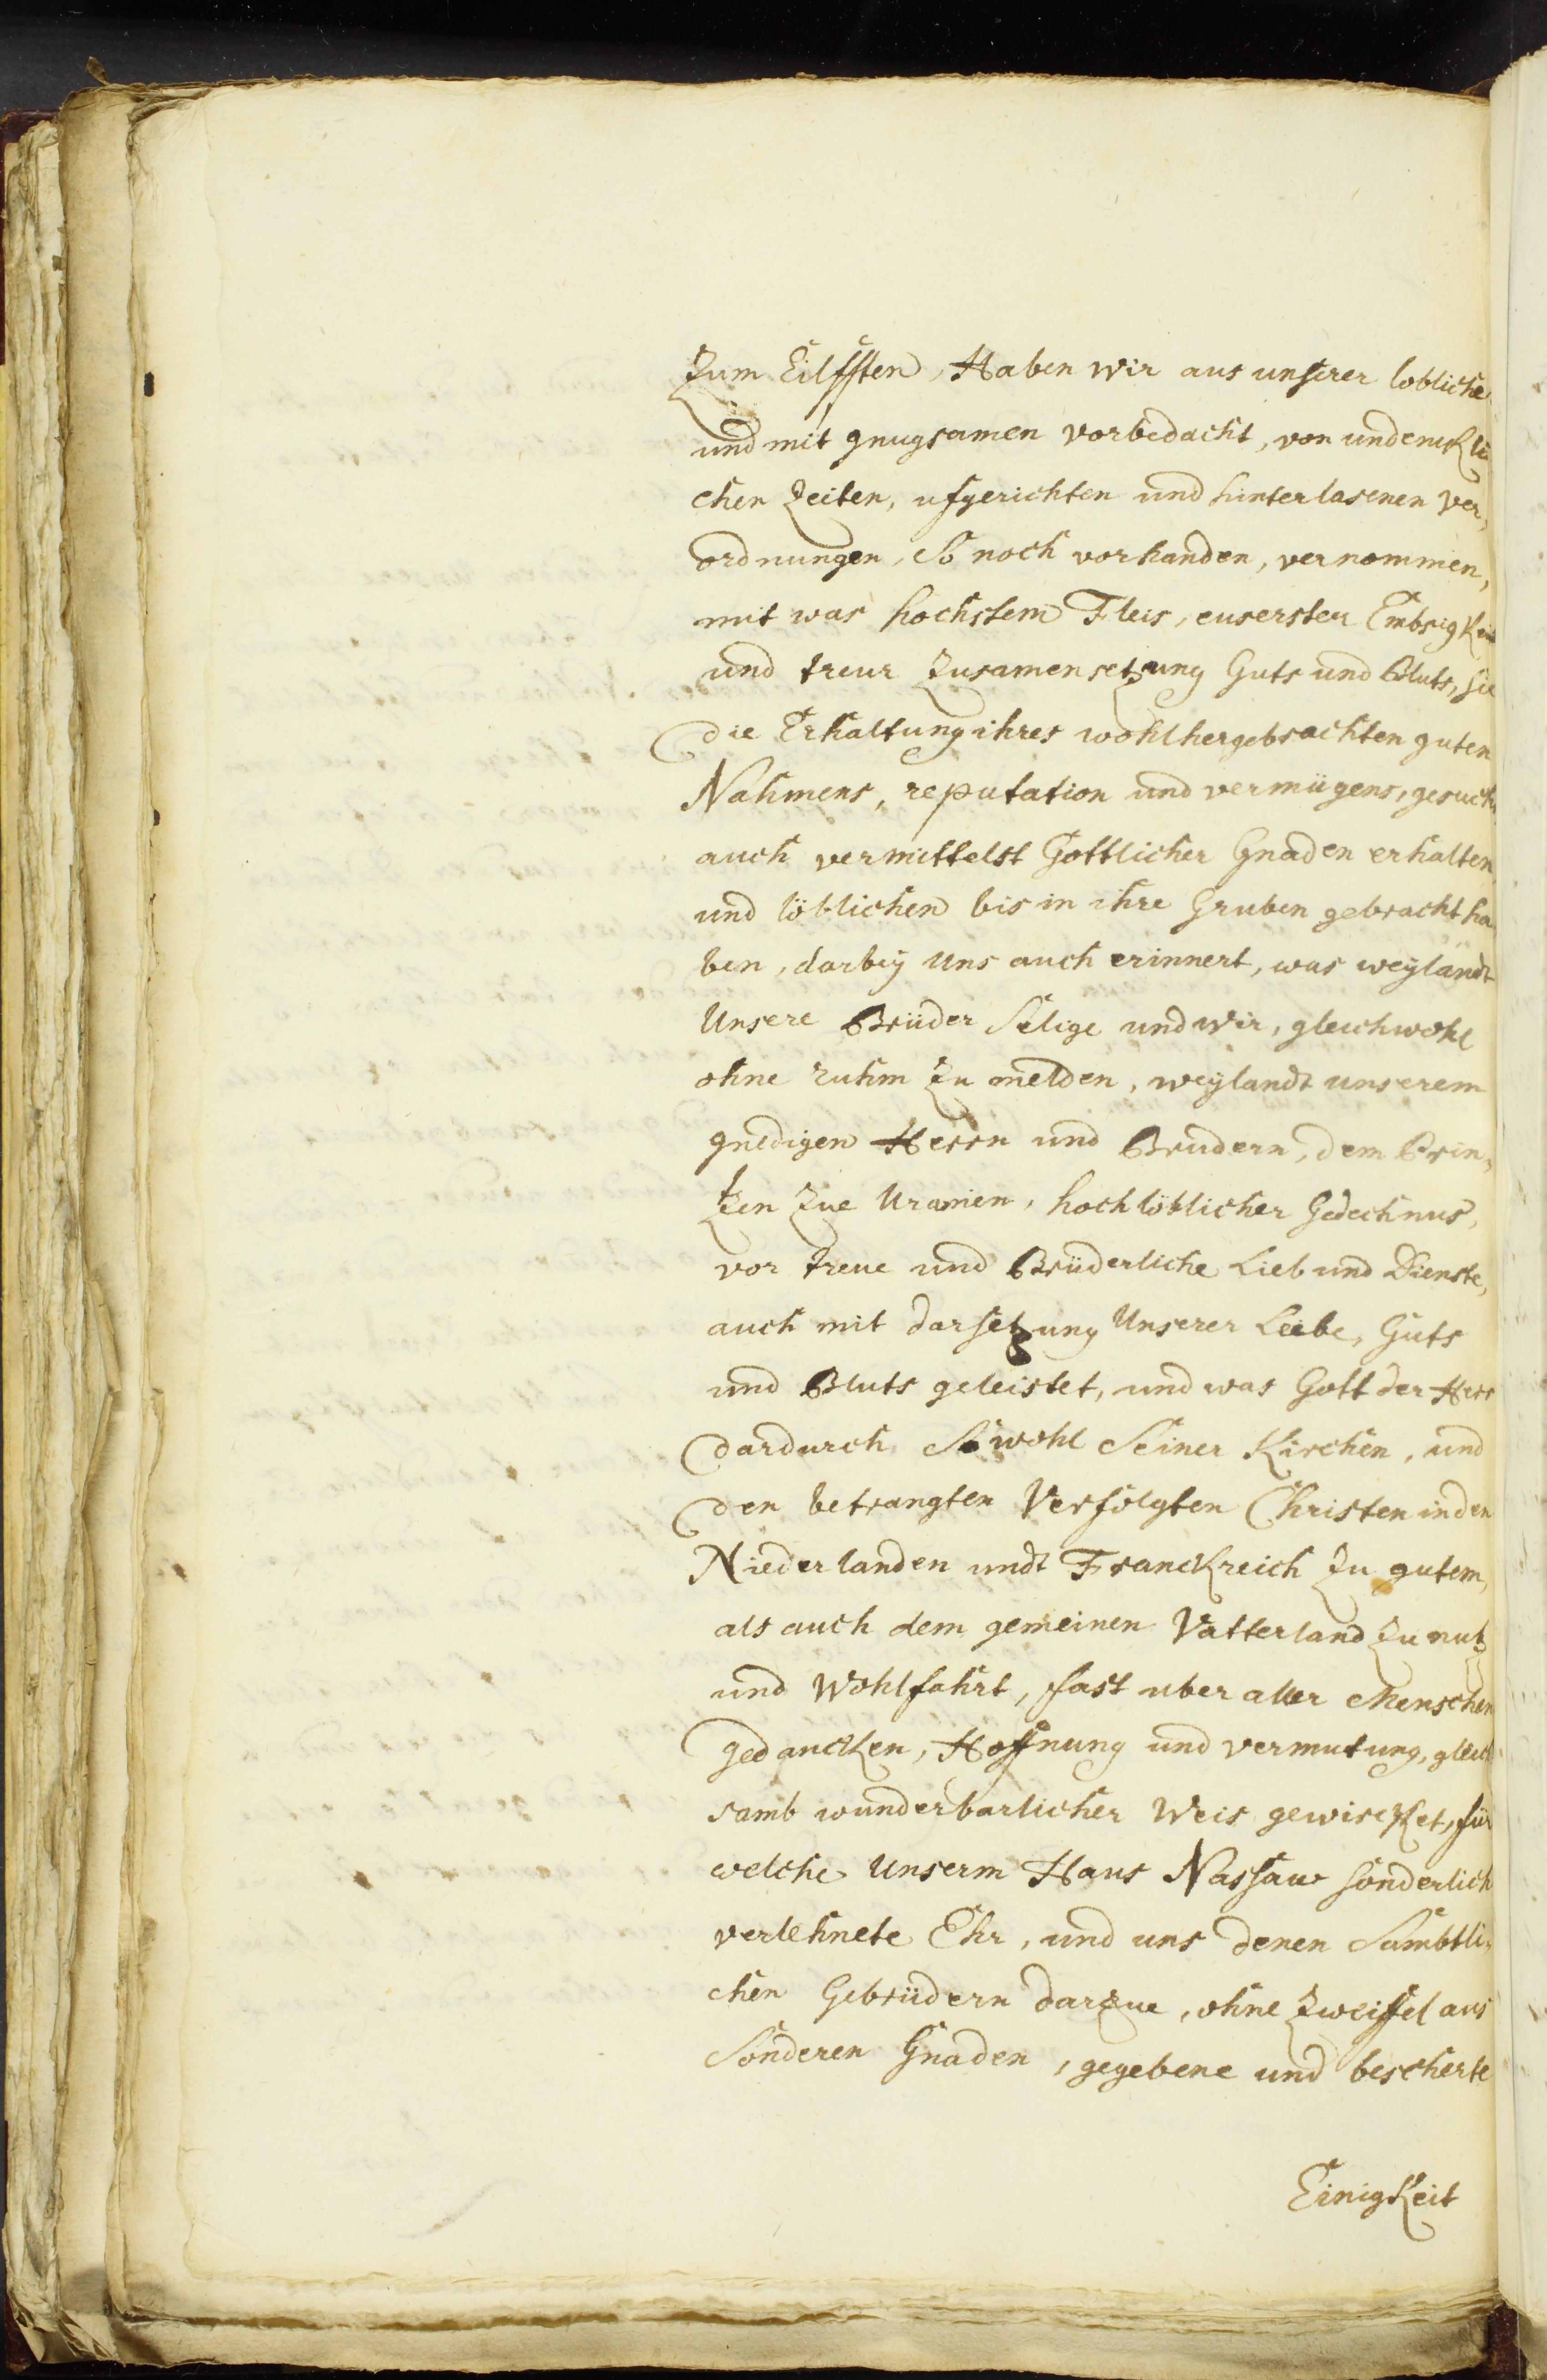 Zum Eilfften, Haben wir aus unserer lobliche
und mit gnugsamen vorbedacht, von undenckli
chen Zeiten, ufgerichten und hinterlasenen Ver,
ordnungen, So noch vorhanden, vernommen,
mit was hochstem Fleis, eusersten Embsigkeit
und treur Zusamensetzung Guts und Bluts, sie
die Erhaltung ihres wohlhergebrachten guten
Nahmens, reputation und vermügens, gesucht
auch vermittelst Gottlicher Gnaden erhalten
und löblichen bis in ihre Gruben gebracht ha
ben, darbey Uns auch erinnert, was weylandt
Unsere Brüder Selige und wir, gleichwohl
ohne ruhm Zu melden, weylandt unserem
gnedigen Herrn und Brudern, dem Prin,
tzen Zue Uranien, hochlöblicher Gedechnus,
vor treue und Brüderliche Lieb und Dienste,
auch mit darsetzung Unserer Leibe, Guts
und Bluts geleistet, und was Gott der Herr
dardurch, Sowohl Seiner Kirchen, und
den betrangten Verfolgten Christen in den
Niederlanden undt Franckreich Zu gutem,
als auch dem gemeinen Vatterland Zu nutz
und Wohlfahrt, fast uber aller Menschen
gedancken, Hoffnung und vermutung, gleich
samb wunderbarlicher Weis gewircket, für
welche Unserm Haus Nassaw sonderlich
verlehnete Ehr, und uns denen Sambtli,
chen Gebrüdern darzue, ohne Zweiffel aus
Sonderen Gnaden, gegebene und bescherte
Einigkeit